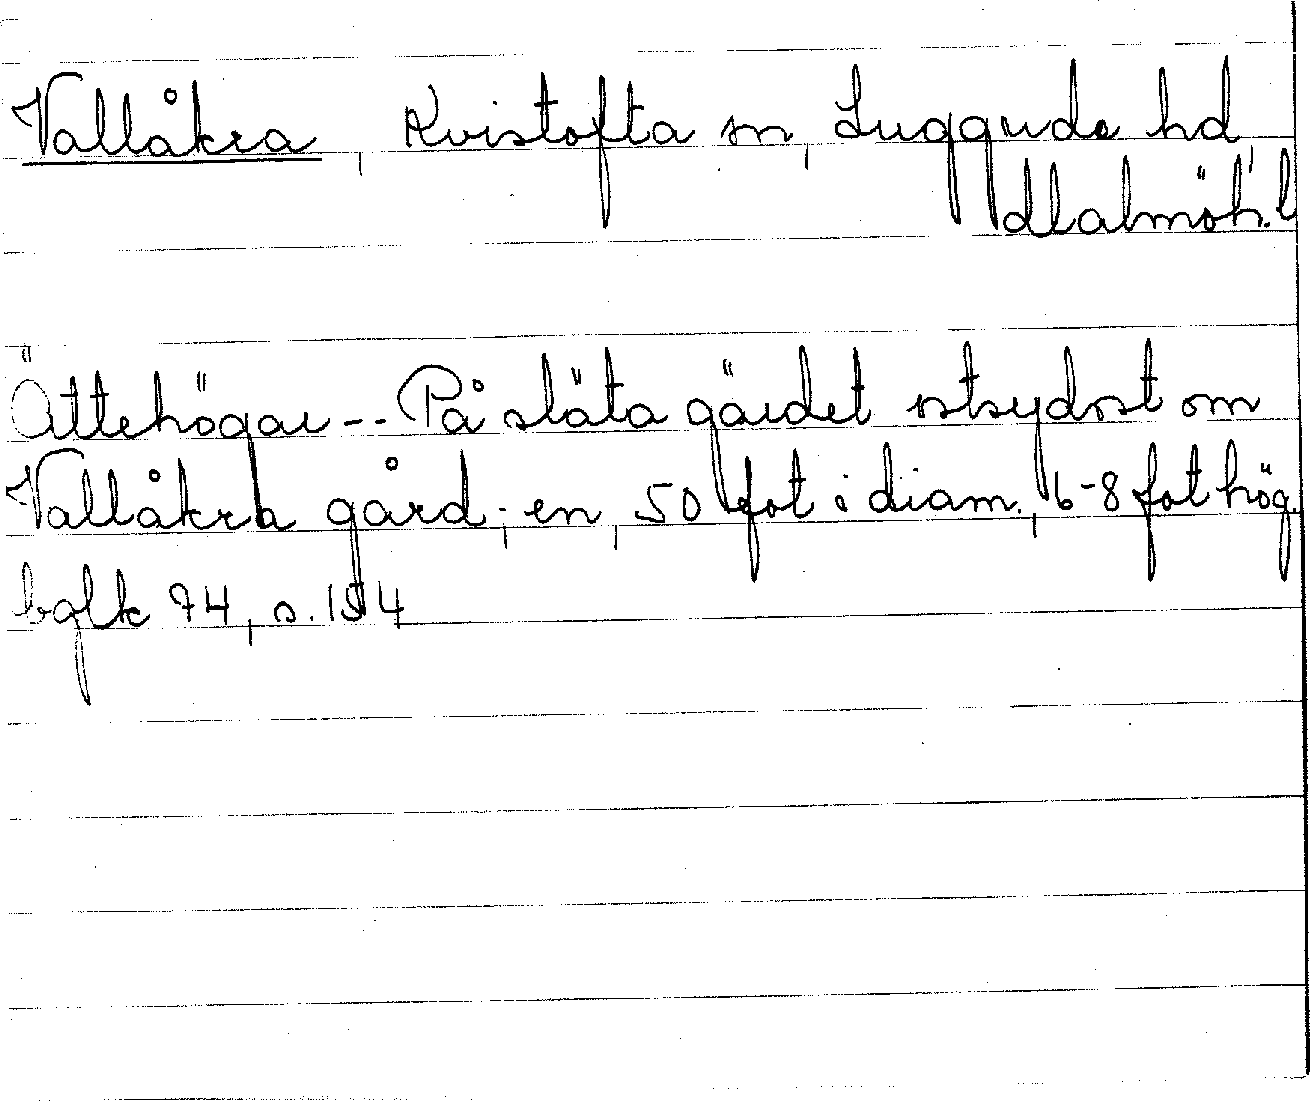 Vallåkra, Kvistofta sn, Luggude hd,
Malmöh. l
Ättehögar -- På släta gärdet ostsydost om
Vallåkra gård; en, 50 fot i diam., 6-8 fot hög.
bqlk 74, s. 154